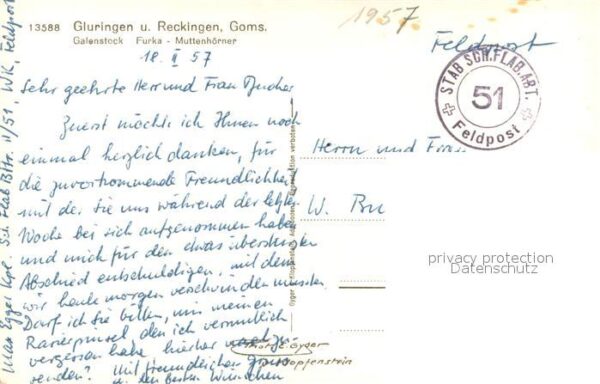 13588 Gluringen u. Reckingen, Goms.
Galenstock Furka - Muttenhörner
1957
18. II 57
Feldpost
STAB SCH. FLAB. ABT.
51
Feldpost
Sehr geehrte Herr und Frau Bucher
Zuerst möchte ich Ihnen noch
einmal herzlich danken, für
die zuvorkommende Freundlichkeit
mit der Sie uns während der letzten
Woche bei sich aufgenommen haben
und mich für den etwas überstürzten
Abschied entschuldigen, mit dem
wir heute morgen verschwinden mussten.
Darf ich Sie bitten, uns meinen
Rasierpinsel den ich vermutlich
vergessen habe hierher
senden? Mit freundlichen
u. den besten Wünschen
Max Egger Kpl. Sch Flab Bttr. II/51, WK, Feldpost
Herrn und Frau
W. Bu
Gyger
privacy protection
Datenschutz